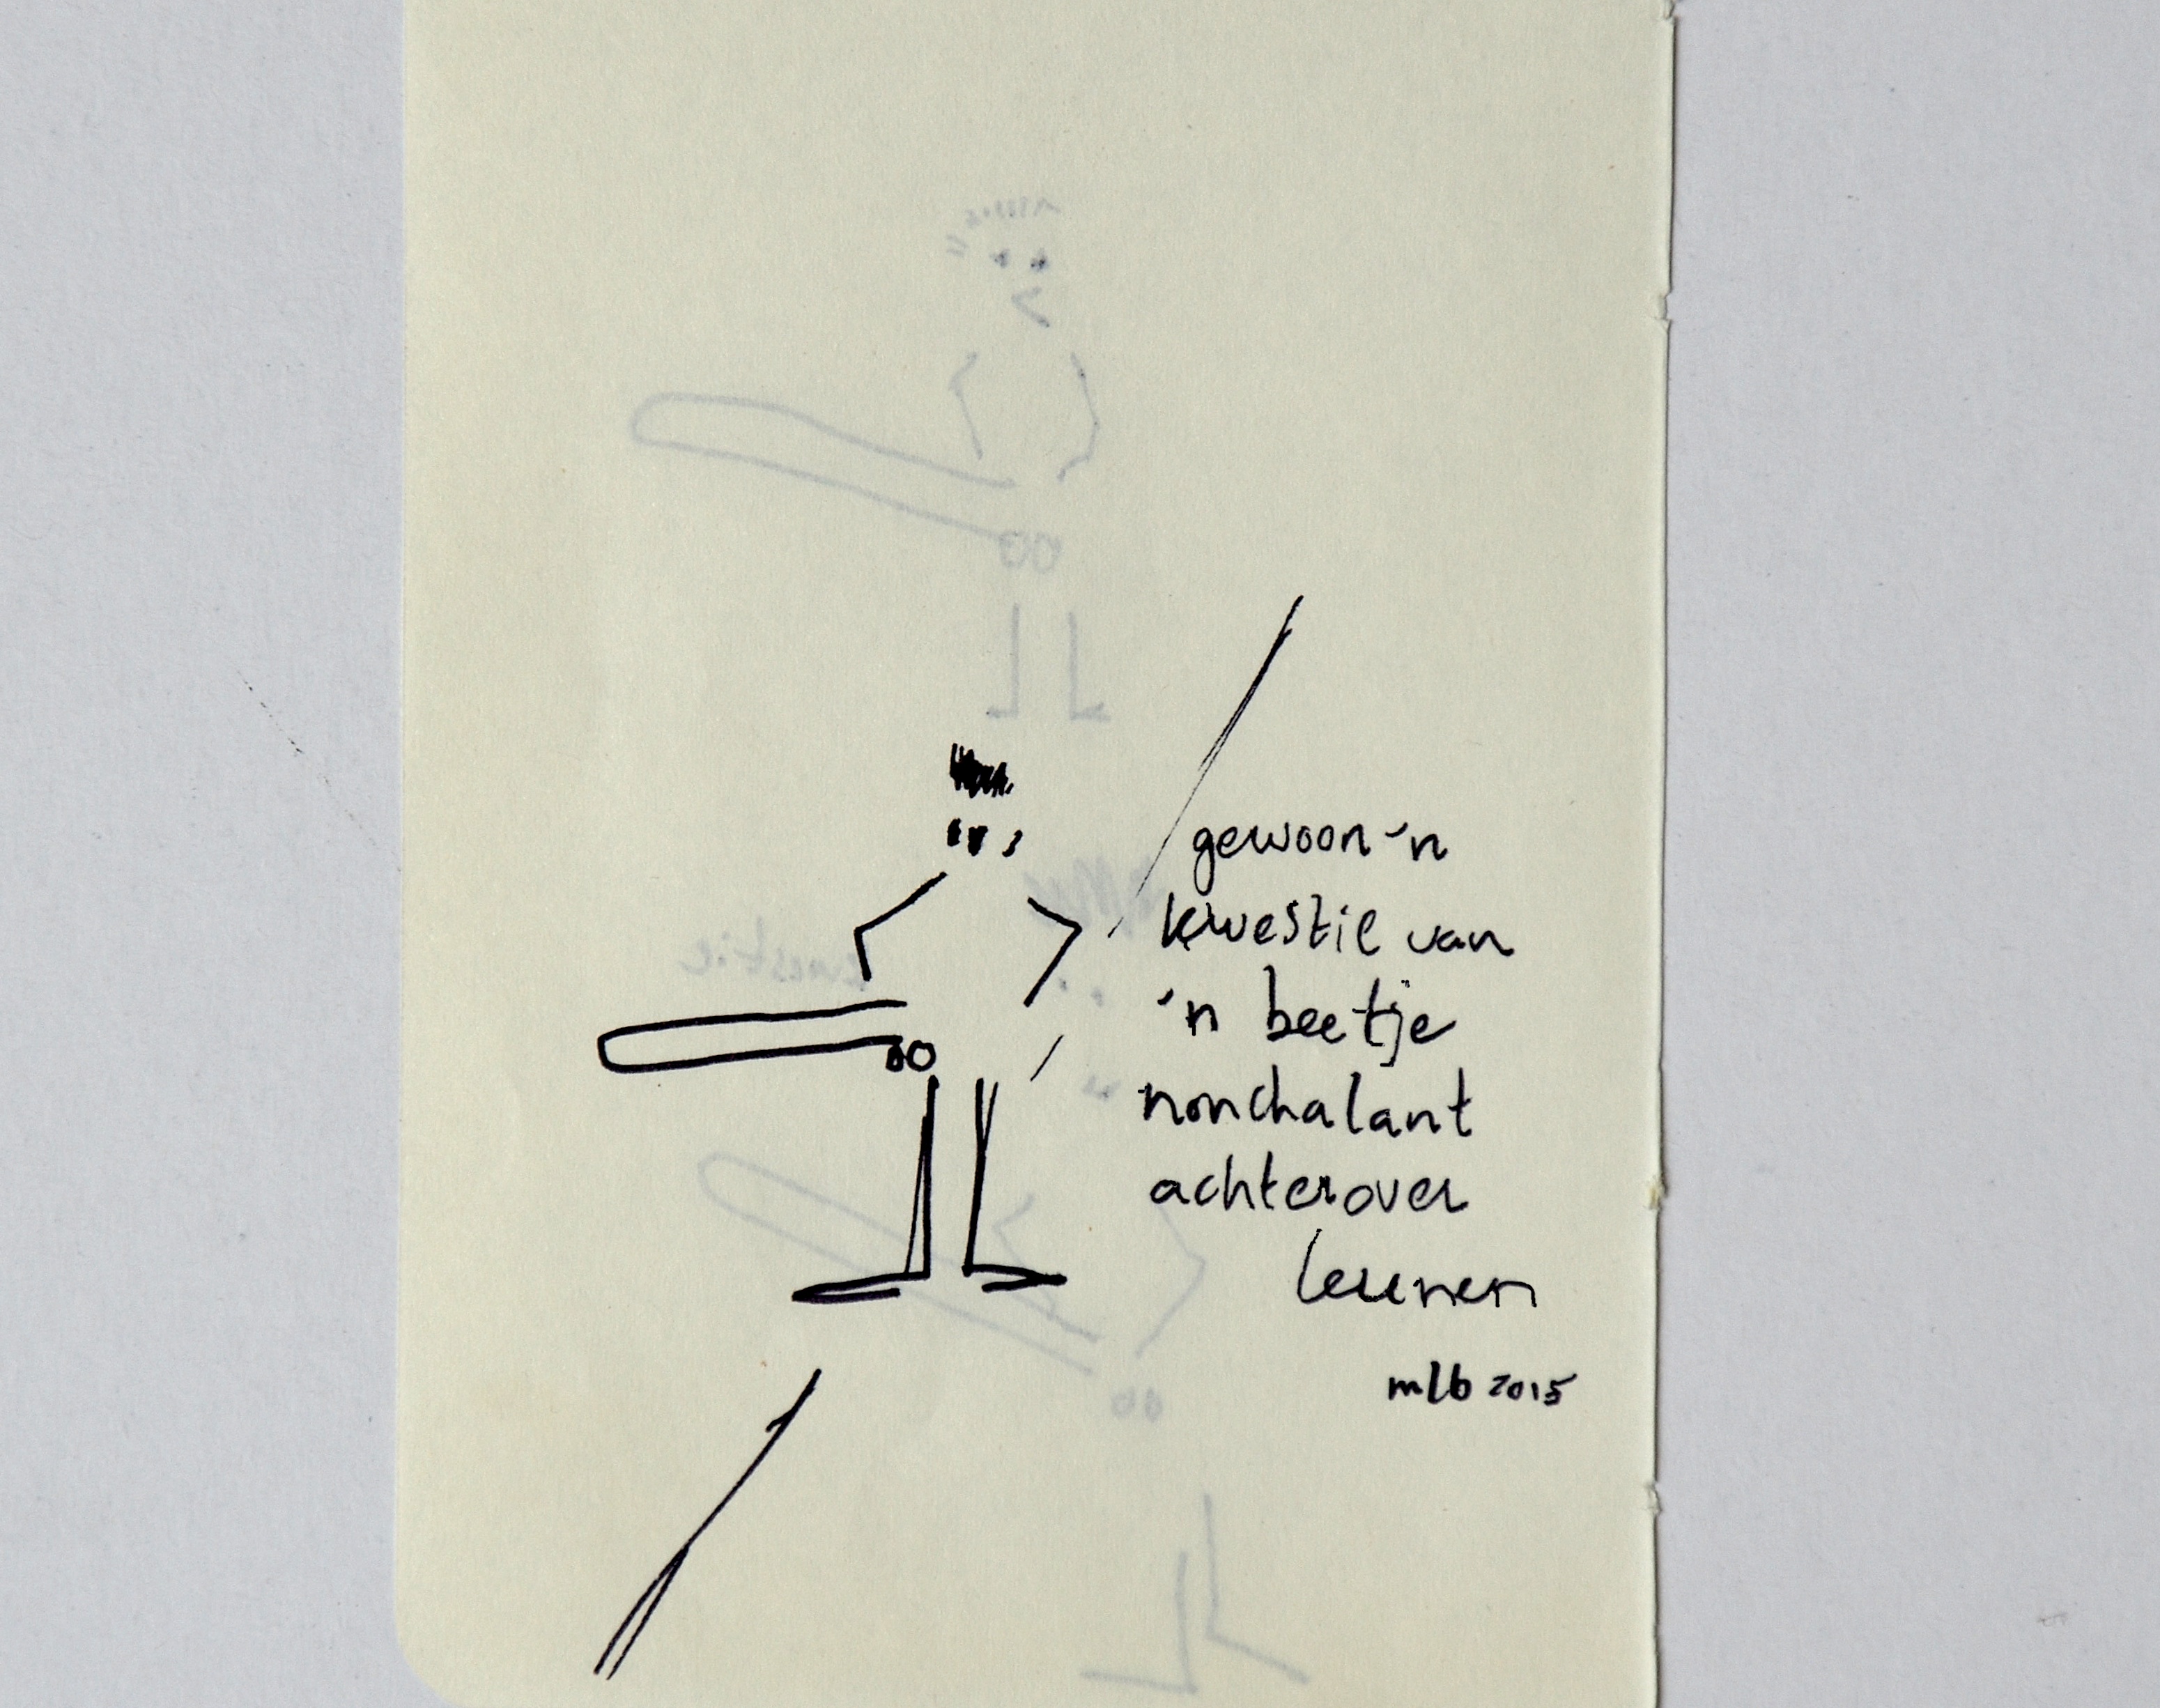 gewoon 'n
kwestie van
'n beetje
nonchalant
achterover
leunen
mlb 2015
kwestie